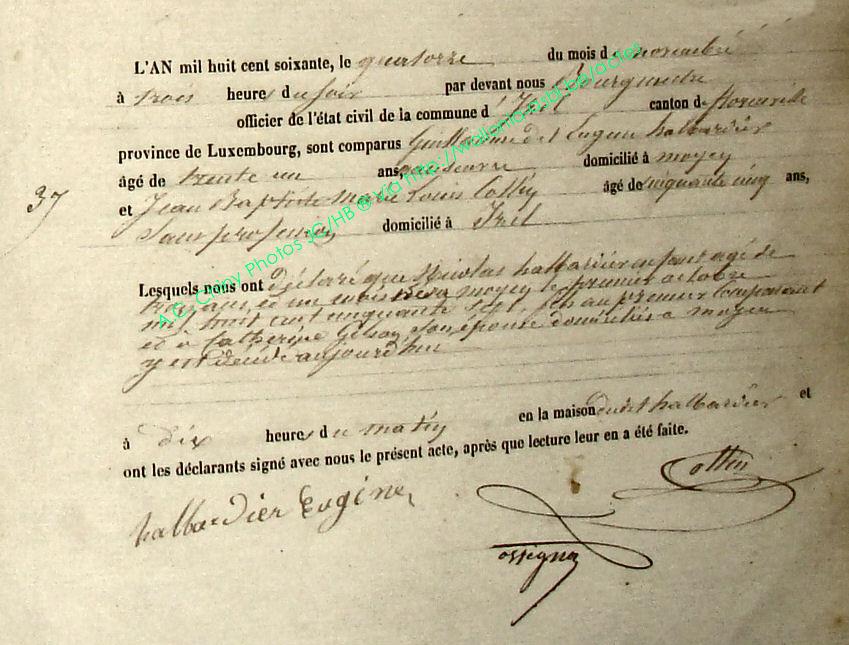 L'AN mil huit cent soixante, le quatorze du mois de novembre
à trois heures du soir par devant nous Bourgmestre
officier de l'état civil de la commune d' Izel canton de florenville
province de Luxembourg, sont comparus Guillaume dit Eugene halbardier
âgé de trente un ans, domicilié à moyen
37
et Jean Baptiste Marie Louis Collin âgé de cinquante cinq ans,
Sans profession domicilié à Izel
Lesquels nous ont déclaré que Nicolas halbardier enfant agé de
trois ans, et un mois né a moyen le premier octobre
mil huit cent cinquante sept, fils au premier Comparant
et a Catherine Gilson Son épouse domiciliés a moyen
y est décédé aujourd'hui
à dix heures du matin en la maison dudit halbardier et
ont les déclarants signé avec nous le présent acte, après que lecture leur en a été faite.
halbardier Eugine Collin
A.C. Chiny Photos JC/HB ® via http://wallonia-asbl.be/actes